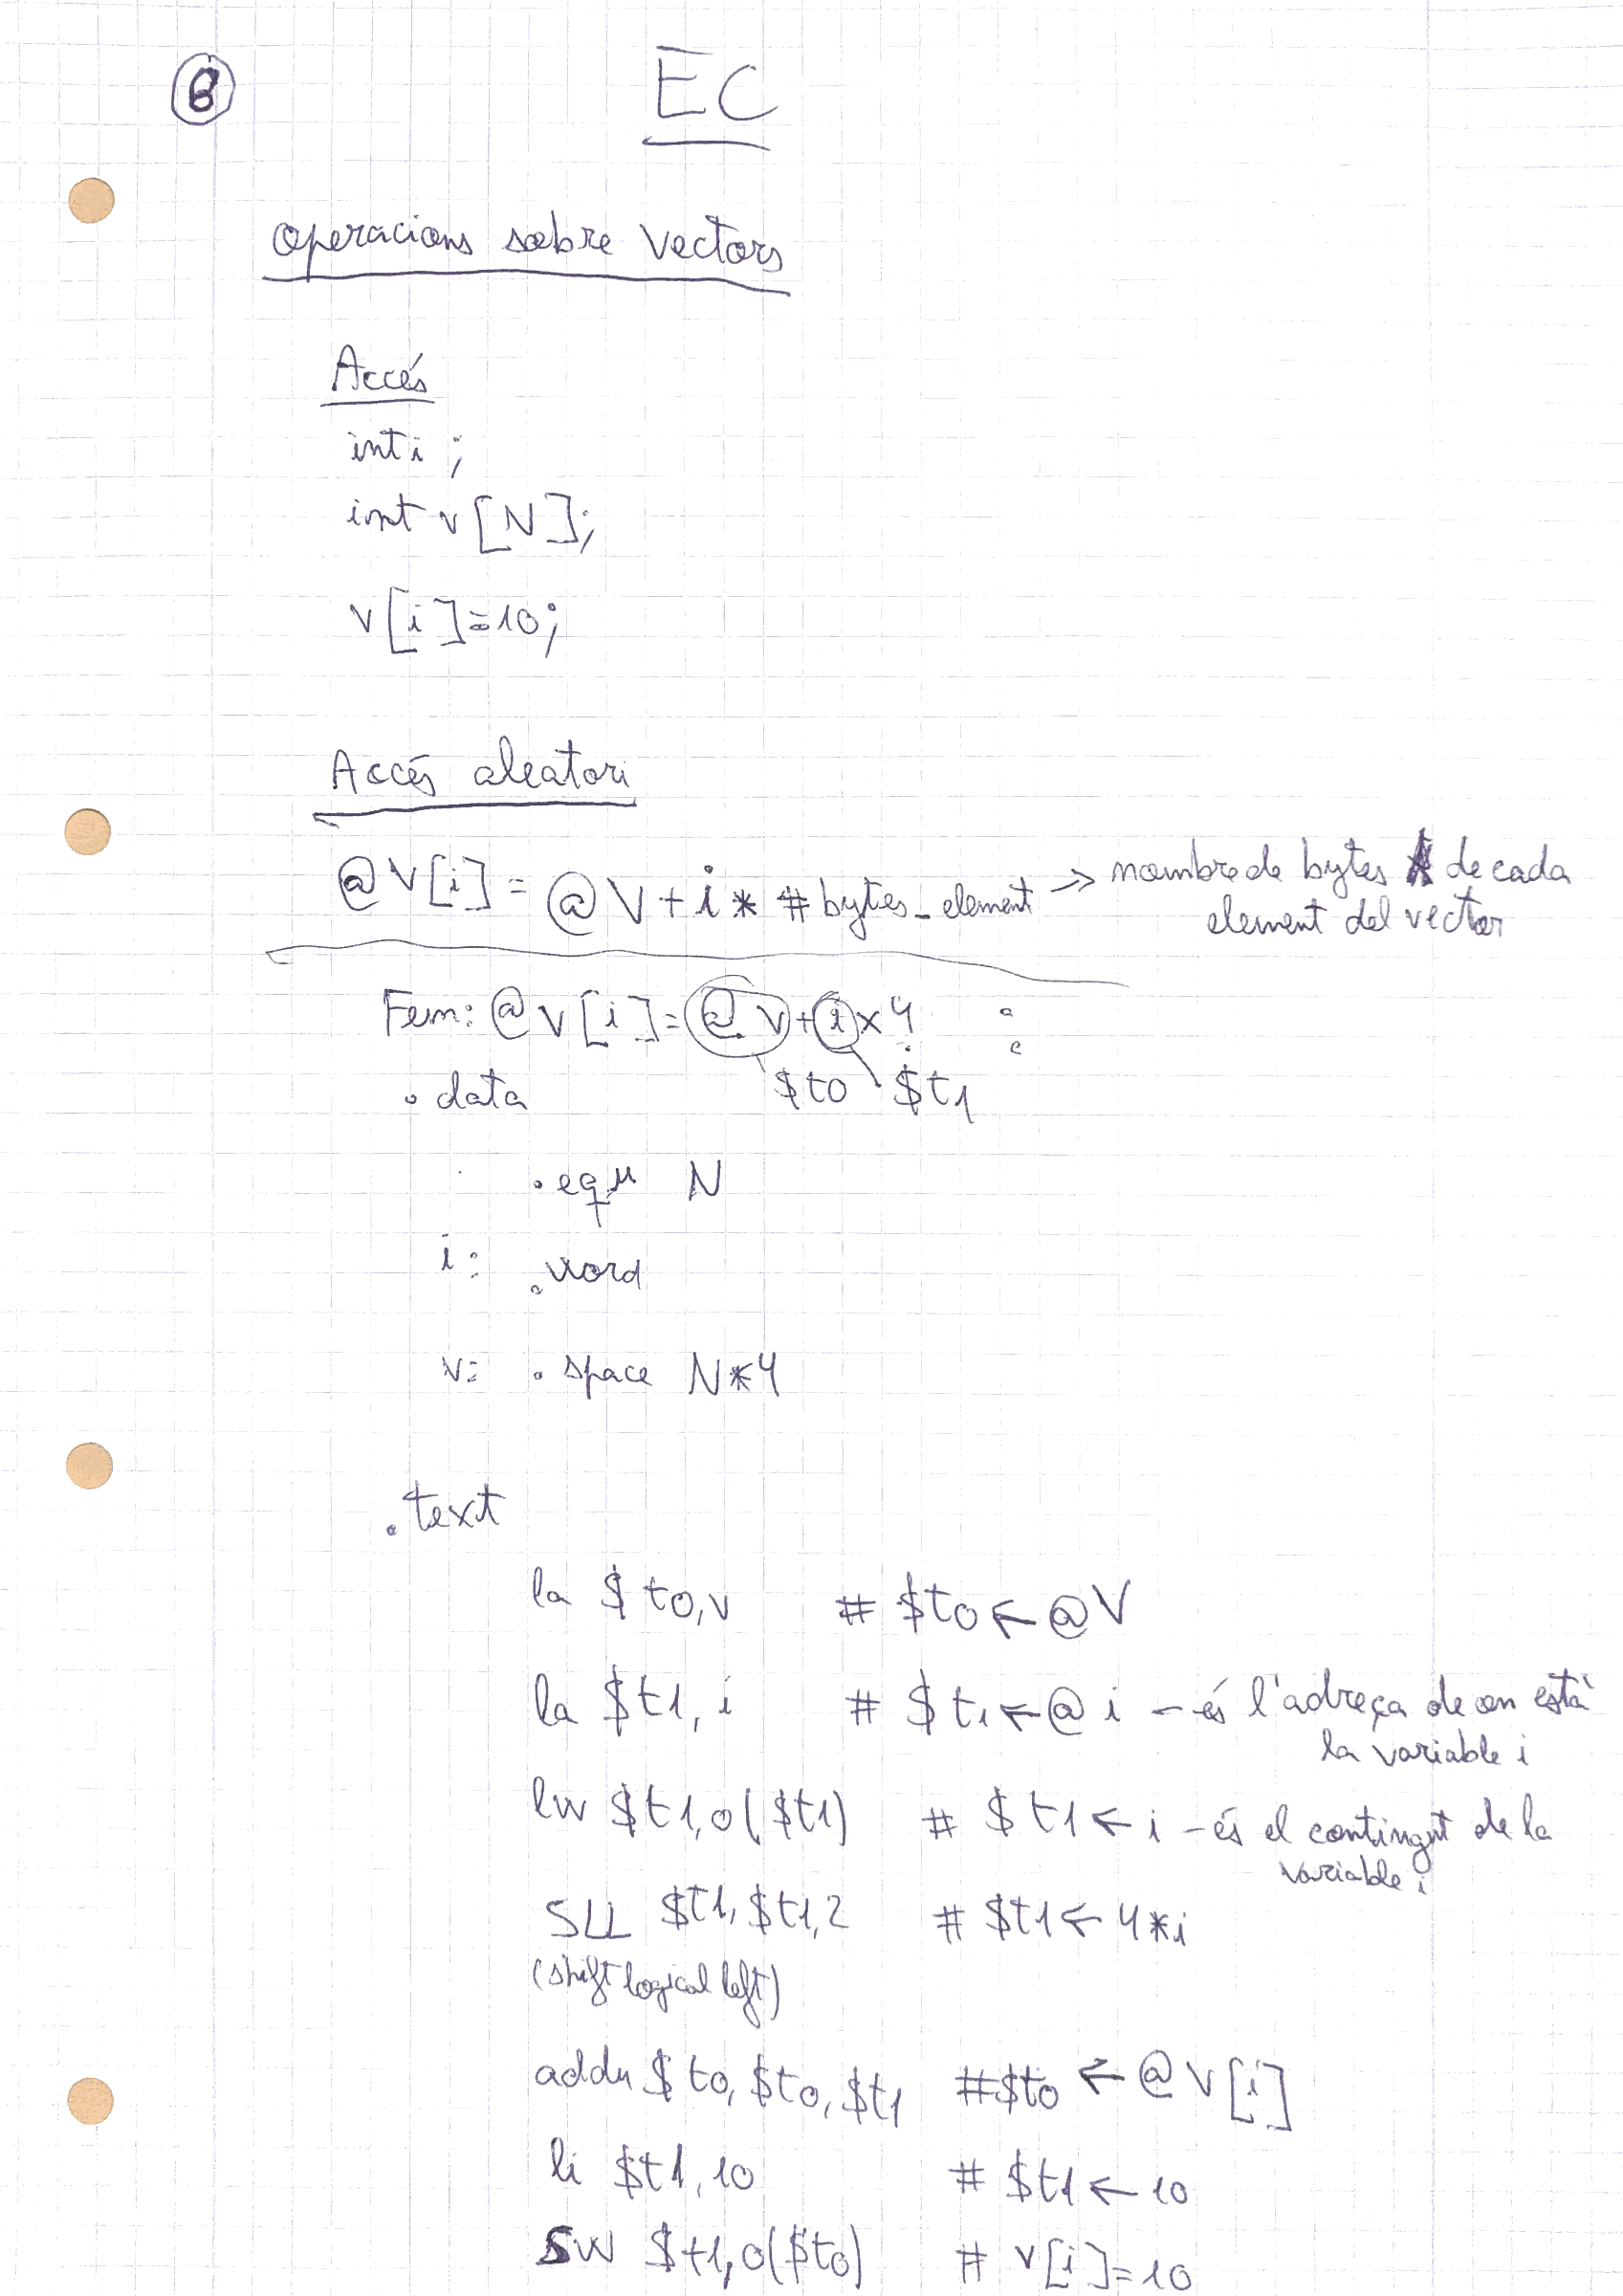 6
EC
Operacions sobre vectors
Accés
int i;
int v[N];
v[i]=10;
Accés aleatori
@V[i] = @V + i * #bytes_element → nombre de bytes de cada
element del vector
Fem: @V[i] = @V + i x 4
$t0 $t1
.data
.equ N
i: .word
v: .space N*4
.text
la $t0, v # $t0 ← @V
la $t1, i # $t1 ← @i - és l'adreça de on està
la variable i
lw $t1, 0($t1) # $t1 ← i - és el contingut de la
variable i
SLL $t1, $t1, 2 # $t1 ← 4*i
(shift logical left)
addu $t0, $t0, $t1 # $t0 ← @V[i]
li $t1, 10 # $t1 ← 10
SW $t1, 0($t0) # v[i]=10